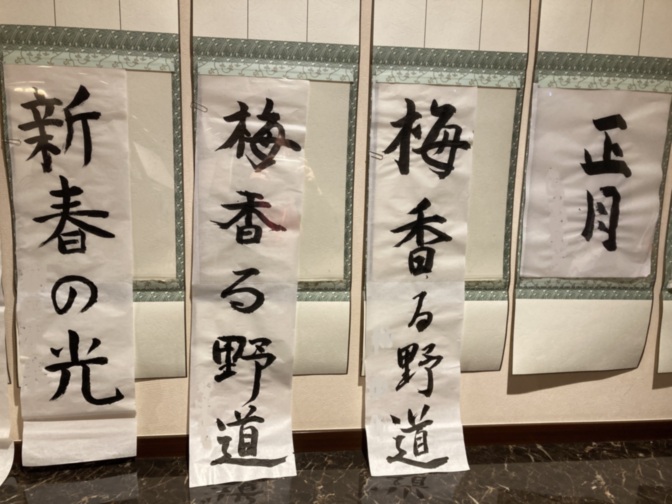 正月
梅香る野道
梅香る野道
新春の光